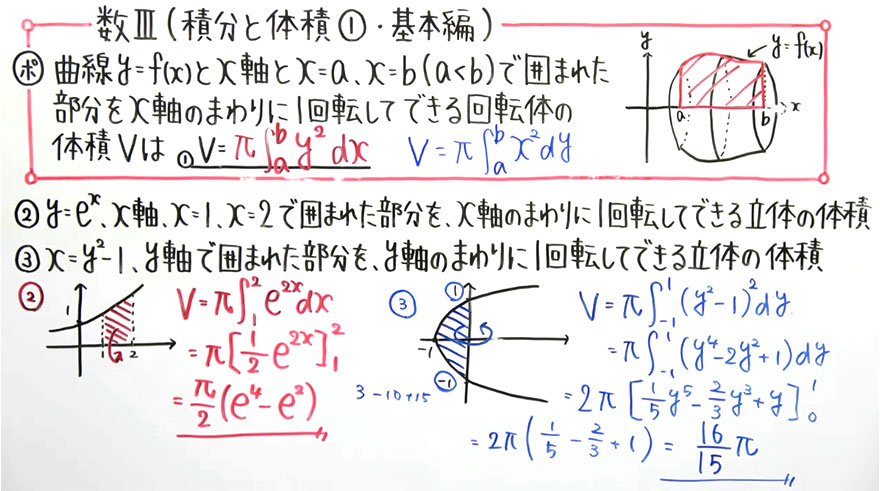 数Ⅲ(積分と体積①・基本編)
ポ 曲線y=f(x)とx軸とx=a、x=b(a<b)で囲まれた
部分をx軸のまわりに1回転してできる回転体の
体積Vは ①V=π∫_a^b y²dx V=π∫_a^b x²dy
y
y=f(x)
a b x
②y=e^x、x軸、x=1、x=2で囲まれた部分を、x軸のまわりに1回転してできる立体の体積
③x=y²-1、y軸で囲まれた部分を、y軸のまわりに1回転してできる立体の体積
②
1
1 2
V=π∫_1^2 e^{2x}dx
=π[1/2 e^{2x}]_1^2
=π/2(e⁴-e²)
③
1
-1
-1
V=π∫_{-1}^1 (y²-1)²dy
=π∫_{-1}^1 (y⁴-2y²+1)dy
3-10+15
=2π[1/5 y⁵-2/3 y³+y]_0^1
=2π(1/5-2/3+1)=16/15 π